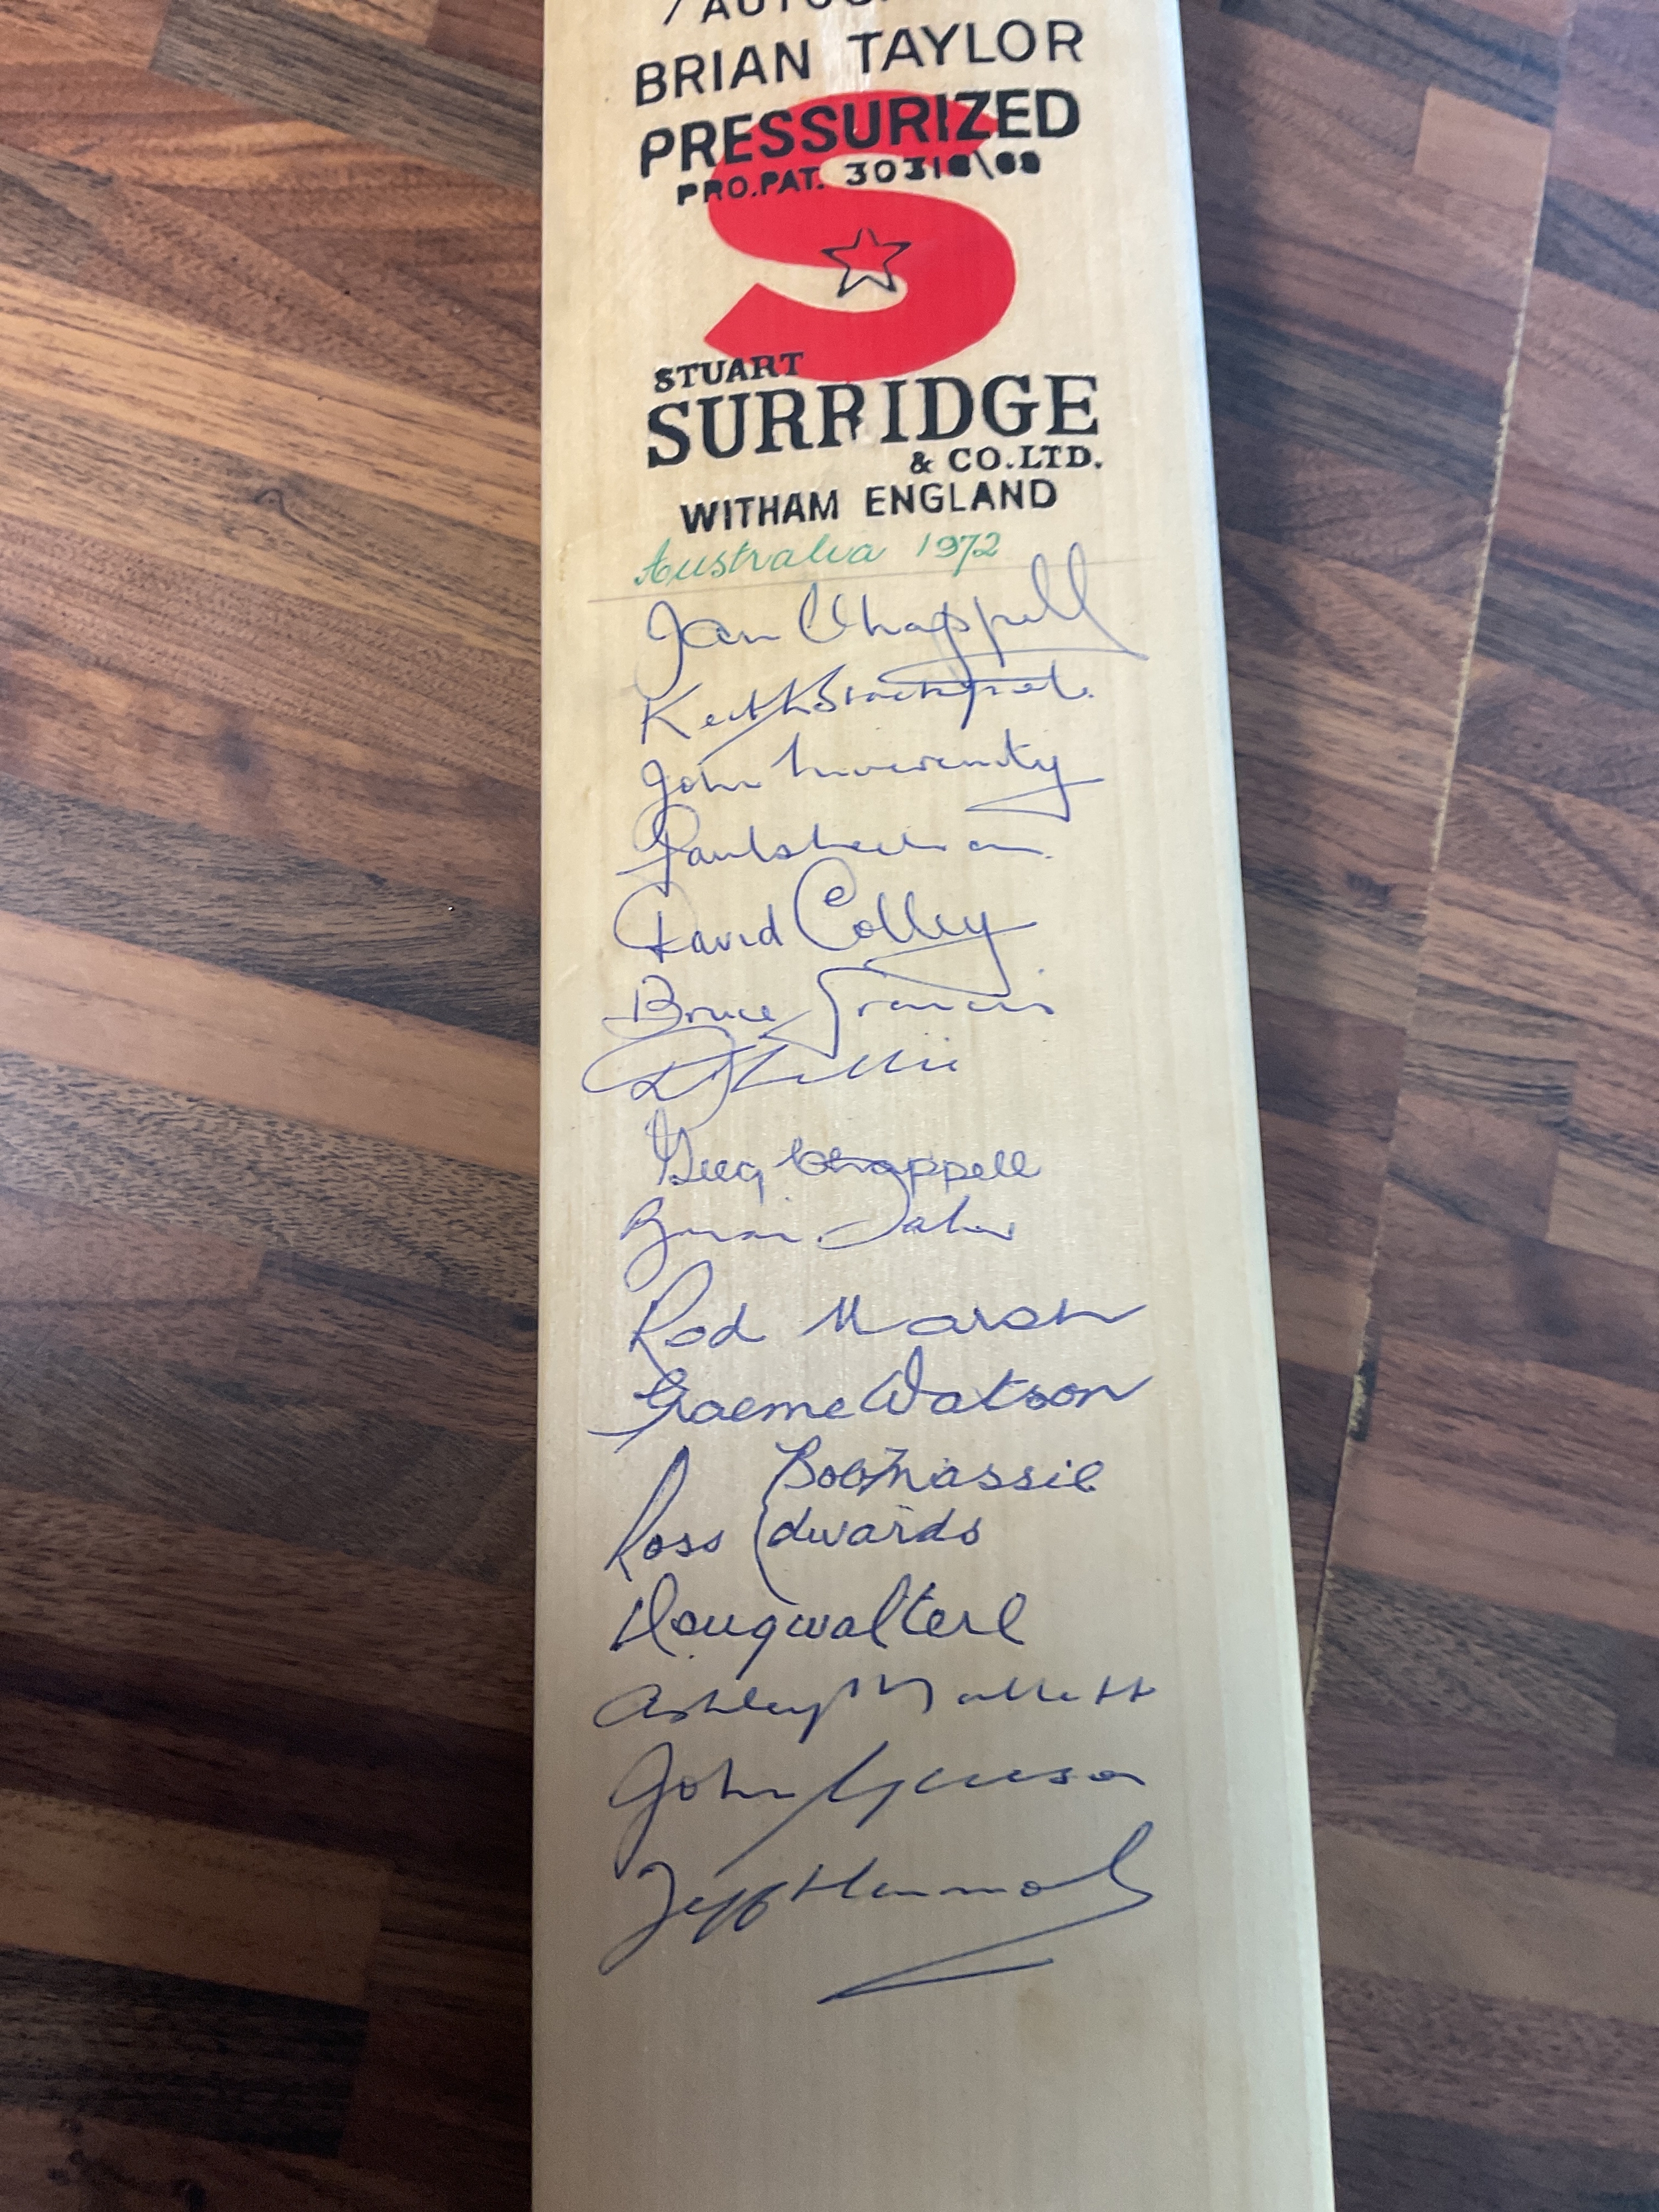 BRIAN TAYLOR
PRESSURIZED
PRO.PAT.
STUART
SURRIDGE
& CO.LTD.
WITHAM ENGLAND
Australia 1972
Ian Chappell
Keith Stackpole
John Inverarity
Paul Sheahan
David Colley
Bruce Francis
D Lillee
Greg Chappell
Brian Taber
Rod Marsh
Graeme Watson
Bob Massie
Ross Edwards
Doug Walters
Ashley Mallett
John Gleeson
Jeff Hammond